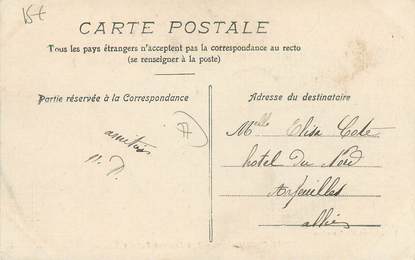 15+
CARTE POSTALE
Tous les pays étrangers n'acceptent pas la correspondance au recto
(se renseigner à la poste)
Partie réservée à la Correspondance
amitiés
Adresse du destinataire
Melle Elisa
hotel du Nord
Arfeuilles
allier